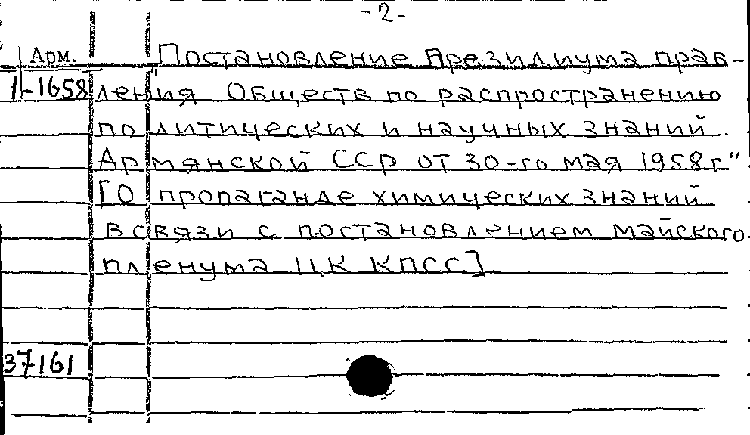 -2-
Арм. "Постановление Президиума прав-
1-1658 ления Обществ по распространению
политических и научных знаний
Армянской ССР от 30-го мая 1958г"
[О пропаганде химических знаний
в связи с постановлением майского
пленума ЦК КПСС]
37161